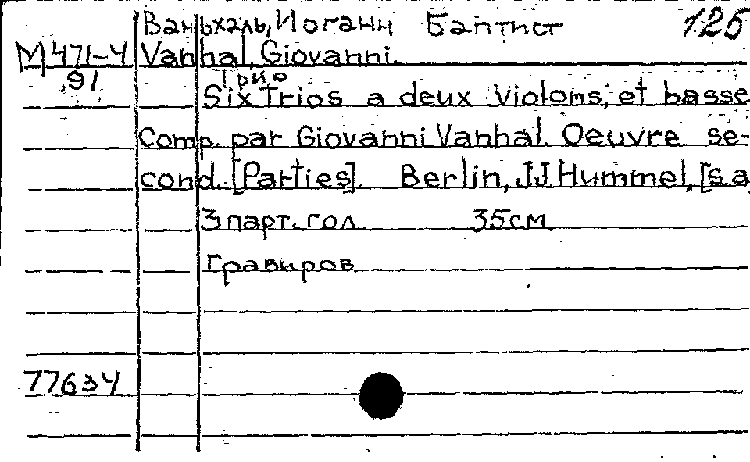 Ваньхаль, Иоганн Баптист 125
М 471-4 Vanhal, Giovanni.
91 Трио
Six Trios a deux Violons, et basse
Comp. par Giovanni Vanhal. Oeuvre se-
cond. [Parties]. Berlin, J.J. Hummel, [s.a
3 парт. гол. 35 см
Гравиров.
77634